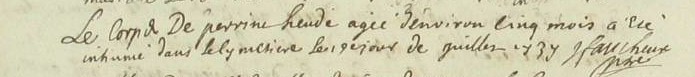 Le Corps De perrine heudé agée d'environ Cinq mois a été
inhumé dans le Cymetiere le jour de juillet 1737 faucheux
ptre